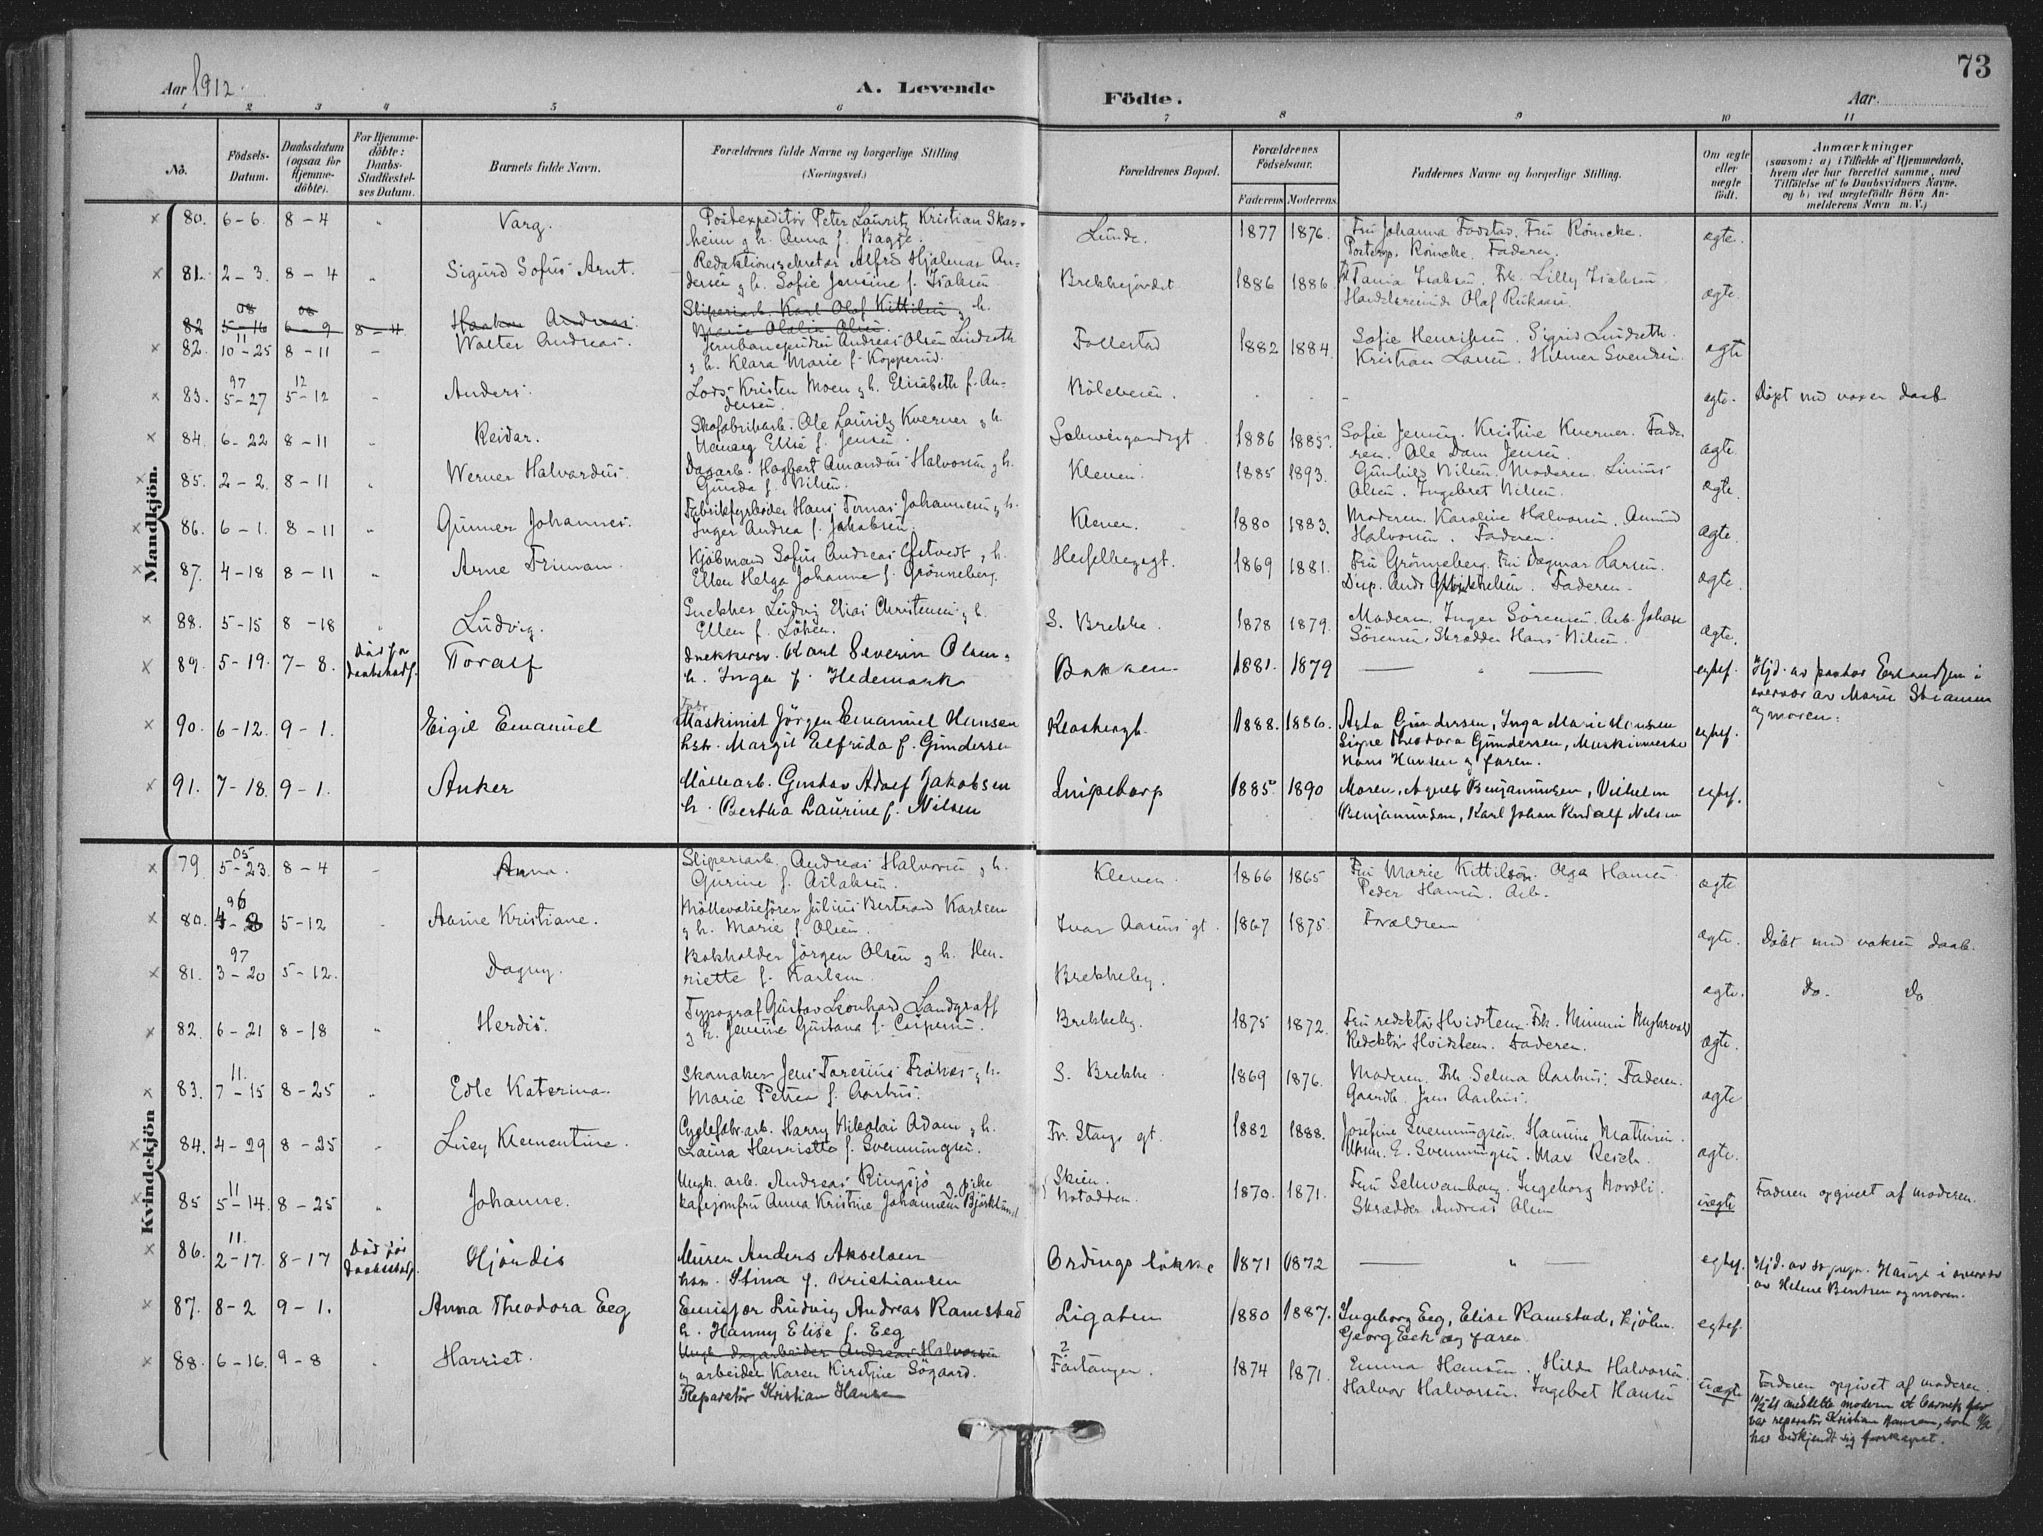 73
Aar 1912.
A. Levende
Födte.
Aar
1 2 3 4 5 6 7 8 9 10 11
No.
Födsels-Datum.
Daabsdatum (ogsaa for Hjemmedöbte).
For Hjemmedöbte: Daabs-Stadfæstelses Datum.
Barnets fulde Navn.
Forældrenes fulde Navne og borgerlige Stilling (Næringsvei.)
Forældrenes Bopæl.
Forældrenes Födselsaar.
Faderens Moderens
Faddernes Navne og borgerlige Stilling.
Om ægte eller uægte födt.
Anmærkninger
(saasom: a) i Tilfælde af Hjemmedaab,
hvem der har forrettet samme, med
Tilföielse af to Daabsvidners Navne.
og b) ved uægtefödte Börn An-
melderens Navn m. V.)
Mandkjön.
80. 6-6. 8-4 " Varg. Postexpeditör Peter Lauritz Kristian Skar-
heim g h. Anna f. Bagge. Lunde. 1877 1876. Fru Johanna Fodstad. Fru Römcke.
Postexp. Römcke. Faderen. ægte.
81. 2-3. 8-4 " Sigurd Sofus Arnt. Redaktionssekretær Alfred Hjalmar An-
dersen g h. Sofie Jensine f. Isaksen Brekkejordet 1886 1886. Isaksen. Frk. Lilly Isaksen
Olaf ægte.
82 08 5-16 08 6-9 8-4 Haakon Andreas. Sliperiarb. Karl Olaf Kittilsen g h.
Marie Olalia Olsen.
82. 11 10-25 8-11 - Walter Andreas. Andreas Olsen Lindseth
g h. Klara Marie f. Kopperud. Follestad 1882 1884. Sofie Henriksen. Sigrid Lindseth.
Kristian Larsen. Hilmer Svendsen. ægte
83. 97 5-27 12 5-12 - Anders. Lods Kristen Moen g h. Elisabeth f. An-
dersen. ægte. Döpt med voxen daab
84. 6-22 8-11 Reidar. Skofabrikarb. Ole Lauritz Kverner g h.
Elise f. Jensen. 1886 1885. Sofie Jensen. Kristine Kverner. Fade
ren. Ole Dam Jensen. ægte.
85. 2-2. 8-11 " Werner Halvardus. Dagarb. Hagbart Amandus Halvorsen g h.
Gunda f. Nilsen. Kleven. 1885 1893. Gunhild Nilsen. Moderen. Linius
Olsen. Ingebret Nilsen. ægte.
86. 6-1. 8-11 " Gunnar Johannes. Fabrikfyrböder Hans Tomas Johannesen g h.
Inger Andrea f. Jakobsen. Kleven. 1880 1883. Moderen. Karoline Halvorsen. Amund
Halvorsen. Faderen. ægte.
87. 4-18 8-11 " Arne Friman. Kjöbmand Sofus Andreas Ofstvedt g h.
Ellen Helga Johanne f. Grönneberg. Hesselbergsgt. 1869 1881. Fru Grönneberg. Fru Dagmar Larsen.
Disp. Faderen. ægte.
88. 5-15 8-18 " Ludvig. Snekker Ludvig Elias Christensen g h.
Ellen f. Löken. S. Brekke. 1878 1879. Moderen. Inger Sörensen. Arb. Johan
Sörensen, Skrædder Hans Nilsen. ægte.
89. 5-19. 7-8. Död för Daabstadf. Toralf Snekkersv. Karl Severin Olsen
h. Inga f. Hedemark Bakken 1881. 1879 — " — egtef. Hjd. av pastor Erlandsen i
overvær av Marie Stiansen
og moren.
90. 6-12. 9-1. Eigil Emanuel Maskinist Jörgen Emanuel Hansen
hstr. Margit Elfrida f. Gundersen Klosbergb. 1888. 1886. Asta Gundersen, Inga Marie Hansen
Signe Theodora Gundersen, Maskinmester
Hans Hansen og faren. egtef.
91. 7-18. 9-1. Anker Möllearb. Gustav Adolf Jakobsen
h. Bertha Laurine f. Nilsen Snipetorp 1885 1890 Moren, Agnes Benjaminsen, Vilhelm
Benjaminsen, Karl Johan Rudolf Nilsen egtef.
Kvindekjön
79. 05 5-23. 8-4 - Anna. Sliperiarb. Andreas Halvorsen g h.
Gurine f. Aslaksen. Kleven. 1866 1865 Fru Marie Kittilsen. Olga Hansen.
Peder Hansen. Arb. ægte
80. 96 5-12 Aarine Kristiane. Möllevaktförer Julius Bertrand Karlsen
g h. Marie f. Olsen. Ivar Aasens gt. 1867 1875 Foræaldrene ægte. Döbt med voksen daab.
81. 97 3-20 5-12. Dagny. Bokholder Jörgen Olsen g h. Hen-
riette f. Karlsen. Brekkeby. ægte. Do. Do
82. 6-21 8-18 " Herdis. Typograf Gustav Leonhard Landgraff
g h. Jensine Gustava f. Caspersen. Brekkeby. 1875 1872. Fru redaktör Hvidsteen. Frk.
Redaktör Hvidsteen. Faderen. ægte.
83. 11. 7-15 8-25 " Edle Katerina. Skomaker Jens g h.
Marie Petrea f. Aarhus. S. Brekke. 1869 1876. Moderen. Frk. Selma Aarhus. Faderen.
Gaardb. Jens Aarhus. ægte
84. 4-29 8-25 - Lucy Klementine. Cyclefabr.arb. Harry Nikolai Adam g h.
Laura Henriette f. Svenningsen. Fr. Stangs gt. 1882 1888. Josefine Svenningsen. Hanna Mathisen.
E. Svenningsen. Max Reich. ægte.
85 11 5-14. 8-25 " Johanne. Ungk. arb. Andreas Ringsjö g pike
kafejomfru Anna Kristine Johannesen Björklund Skien.
Notodden. 1870. 1871. Fru Schwanborg. Ingeborg Nordli.
Skrædder Andreas Olsen uægte Faderen opgivet af moderen.
86. 11 2-17. 8-17 Död för Daabstadf. Hjördis Murer Anders Akselsen
hstr. Stina f. Kristiansen Ordings lökke 1871 1872 — " — egtef. Hjd. av sogepr. Hauge i overvær
av Helene Bentsen og moren.
87. 8-2 9-1. Anna Theodora Eeg Ludvig Andreas Ramstad
h. Hanny Elise f. Eeg Ligaten 1880 1887. Ingeborg Eeg, Elise Ramstad, Kjölm.
Georg Eek og faren. egtef.
88. 6-16. 9-8 " Harriet. Ungk. dagarbeider Andreas Halvorsen
g arbeider Karen Kirstine Sögaard.
Reparatör Kristian Hansen ? Far'tangen 1874 1871. Emma Hansen. Hilda Halvorsen.
Halvor Halvorsen. Ingebret Hansen uægte Faderen opgivet af moderen.
meddelte moderen at barnets far
var reparatör Kristian Hansen, som
har vedkjendt sig farskapet.